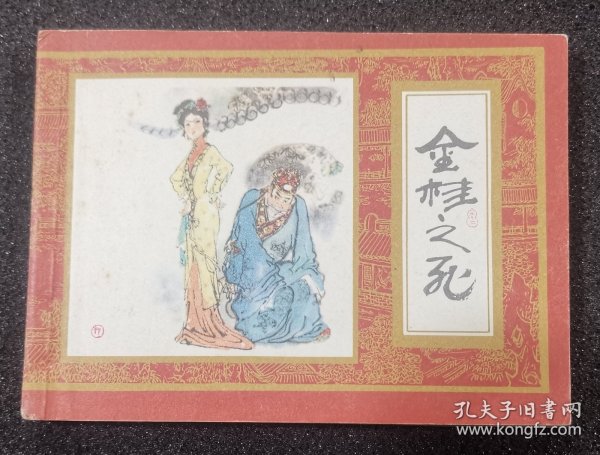 金桂之死
孔夫子旧書网
www.kongfz.com